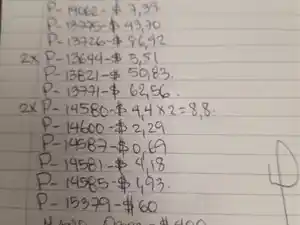 P- 14062-$ 7,39
P- 13775-$ 43,70
P- 13726-$ 96,92
2x P- 13644-$ 5,51
P- 13821-$ 50,83.
P- 13771-$ 62,56.
2x P- 14580-$ 4,4 x 2 = 8,8.
P- 14600-$ 2,29
P- 14587-$ 0,69
P- 14581-$ 4,18
P- 14585-$ 1,93.
P- 15379-$ 60